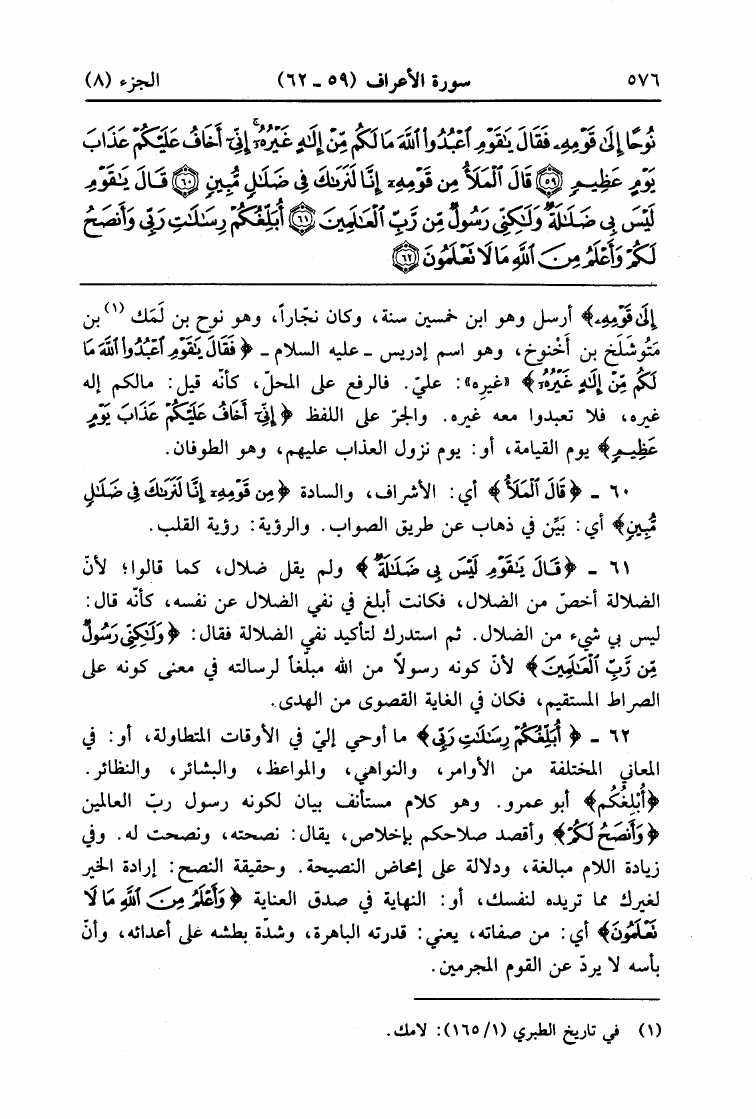 ٥٧٦ سورة الأعراف (٥٩ ـ ٦٢) الجزء (٨)
نُوحًا إِلَىٰ قَوْمِهِۦ فَقَالَ يَٰقَوْمِ ٱعْبُدُوا۟ ٱللَّهَ مَا لَكُم مِّنْ إِلَٰهٍ غَيْرُهُۥٓ إِنِّىٓ أَخَافُ عَلَيْكُمْ عَذَابَ
يَوْمٍ عَظِيمٍ ۝٥٩ قَالَ ٱلْمَلَأُ مِن قَوْمِهِۦٓ إِنَّا لَنَرَىٰكَ فِى ضَلَٰلٍ مُّبِينٍ ۝٦٠ قَالَ يَٰقَوْمِ
لَيْسَ بِى ضَلَٰلَةٌ وَلَٰكِنِّى رَسُولٌ مِّن رَّبِّ ٱلْعَٰلَمِينَ ۝٦١ أُبَلِّغُكُمْ رِسَٰلَٰتِ رَبِّى وَأَنصَحُ
لَكُمْ وَأَعْلَمُ مِنَ ٱللَّهِ مَا لَا نَعْلَمُونَ ۝٦٢
إِلَىٰ قَوْمِهِۦ﴾ أرسل وهو ابن خمسين سنة، وكان نجّاراً، وهو نوح بن لَمَك (١) بن
مَتُوشَلَخ بن أَخْنوخ، وهو اسم إدريس ـ عليه السلام ـ ﴿فَقَالَ يَٰقَوْمِ ٱعْبُدُوا۟ ٱللَّهَ مَا
لَكُم مِّنْ إِلَٰهٍ غَيْرُهُۥٓ﴾ «غيرِه»: عليّ. فالرفع على المحلّ، كأنّه قيل: مالكم إله
غيره، فلا تعبدوا معه غيره. والجرّ على اللفظ ﴿إِنِّىٓ أَخَافُ عَلَيْكُمْ عَذَابَ يَوْمٍ
عَظِيمٍ﴾ يوم القيامة، أو: يوم نزول العذاب عليهم، وهو الطوفان.
٦٠ ـ ﴿قَالَ ٱلْمَلَأُ﴾ أي: الأشراف، والسادة ﴿مِن قَوْمِهِۦٓ إِنَّا لَنَرَىٰكَ فِى ضَلَٰلٍ
مُّبِينٍ﴾ أي: بَيِّن في ذهاب عن طريق الصواب. والرؤية: رؤية القلب.
٦١ ـ ﴿قَالَ يَٰقَوْمِ لَيْسَ بِى ضَلَٰلَةٌ﴾ ولم يقل ضلال، كما قالوا؛ لأنّ
الضلالة أخصّ من الضلال، فكانت أبلغ في نفي الضلال عن نفسه، كأنّه قال:
ليس بي شيء من الضلال. ثم استدرك لتأكيد نفي الضلالة فقال: ﴿وَلَٰكِنِّى رَسُولٌ
مِّن رَّبِّ ٱلْعَٰلَمِينَ﴾ لأنّ كونه رسولاً من الله مبلّغاً لرسالته في معنى كونه على
الصراط المستقيم، فكان في الغاية القصوى من الهدى.
٦٢ ـ ﴿أُبَلِّغُكُمْ رِسَٰلَٰتِ رَبِّى﴾ ما أوحي إليّ في الأوقات المتطاولة، أو: في
المعاني المختلفة من الأوامر، والنواهي، والمواعظ، والبشائر، والنظائر.
﴿أُبْلِغُكُم﴾ أبو عمرو. وهو كلام مستأنف بيان لكونه رسول ربّ العالمين
﴿وَأَنصَحُ لَكُمْ﴾ وأقصد صلاحكم بإخلاص، يقال: نصحته، ونصحت له. وفي
زيادة اللام مبالغة، ودلالة على إمحاض النصيحة. وحقيقة النصح: إرادة الخير
لغيرك مما تريده لنفسك، أو: النهاية في صدق العناية ﴿وَأَعْلَمُ مِنَ ٱللَّهِ مَا لَا
نَعْلَمُونَ﴾ أي: من صفاته، يعني: قدرته الباهرة، وشدّة بطشه على أعدائه، وأنّ
بأسه لا يردّ عن القوم المجرمين.
(١) في تاريخ الطبري (١/١٦٥): لامك.